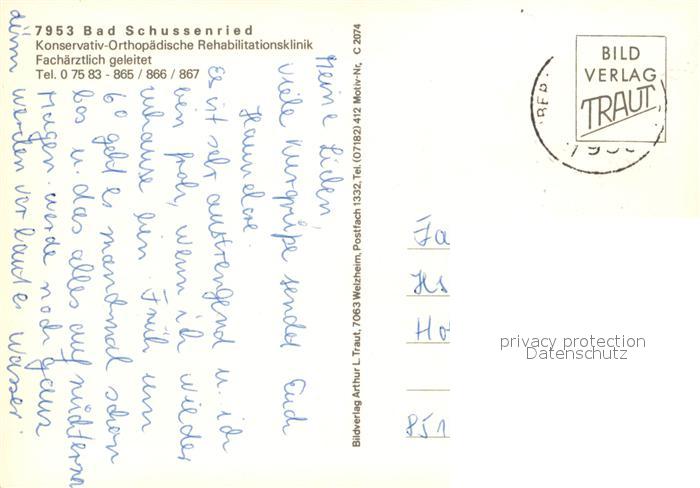 7953 Bad Schussenried
Konservativ-Orthopädische Rehabilitationsklinik
Fachärztlich geleitet
Tel. 0 75 83 - 865 / 866 / 867
Meine Lieben,
viele Kurgrüße sendet Euch
Hannelore.
Es ist sehr anstrengend u. ich
bin froh, wenn ich wieder
zuhause bin. Früh um
6° geht es manchmal schon
los u. das alles auf nüchternen
Magen. werde noch ganz
dünn werden vor lauter Wasser.
Bildverlag Arthur L. Traut, 7063 Welzheim, Postfach 1332, Tel. (07182) 412 Motiv-Nr. C 2074
BILD
VERLAG
TRAUT
Fa
Hs
851
privacy protection
Datenschutz